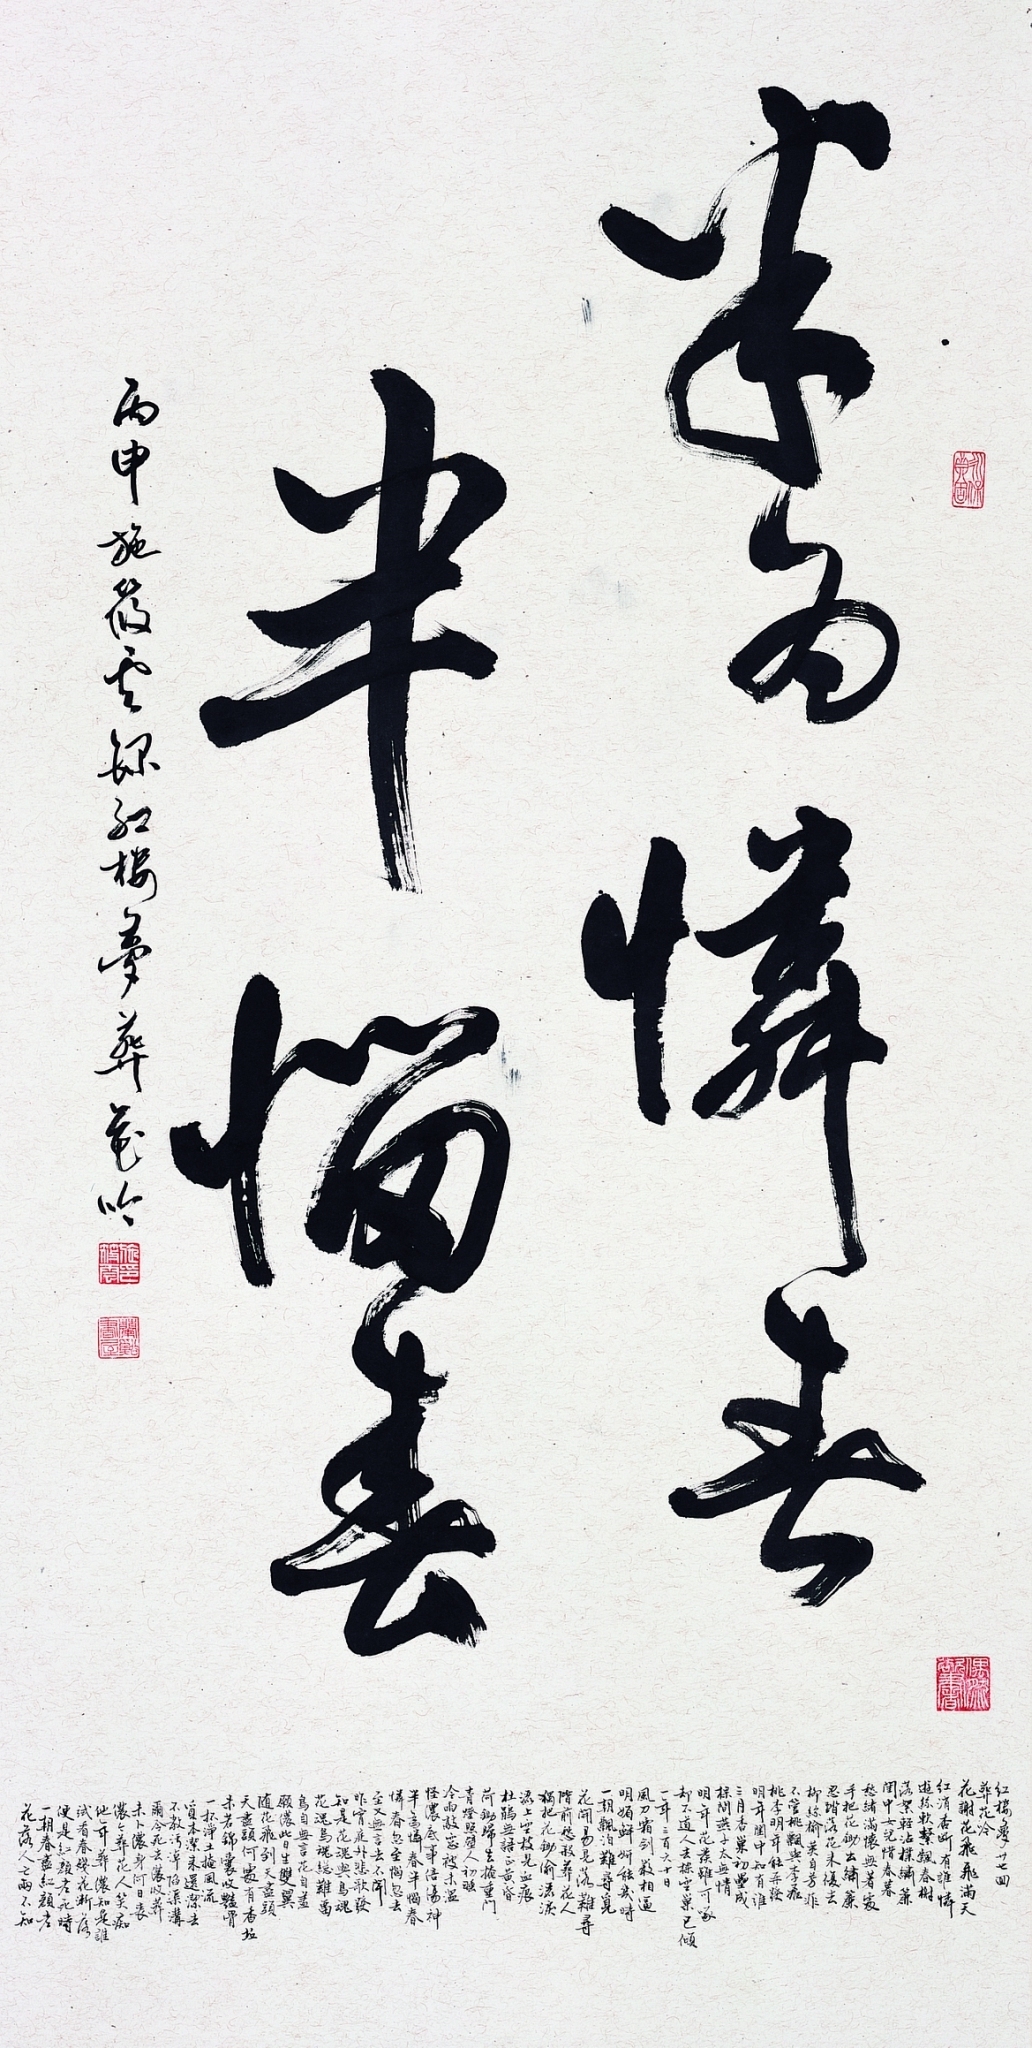 半為憐春
半惱春
丙申施筱雲錄紅樓夢葬花吟
紅樓夢廿七回
葬花冷
花謝花飛飛滿天
紅消香斷有誰憐
遊絲軟繫飄春榭
落絮輕沾撲繡簾
閨中女兒惜春暮
愁緒滿懷無著處
手把花鋤出繡簾
忍踏落花來復去
柳絲榆莢自芳菲
不管桃飄與李飛
桃李明年能再發
明年閨中知有誰
三月香巢初壘成
樑間燕子太無情
明年花發雖可啄
却不道人去樑空巢已傾
一年三百六十日
風刀霜劍嚴相逼
明媚鮮妍能幾時
一朝飄泊難尋覓
花開易見落難尋
階前愁殺葬花人
獨把花鋤偷灑淚
灑上空枝見血痕
杜鵑無語正黃昏
荷鋤歸去掩重門
青燈照壁人初睡
冷雨敲窗被未溫
怪儂底事倍傷神
半為憐春半惱春
憐春忽至惱忽去
至又無言去不聞
昨宵庭外悲歌發
知是花魂與鳥魂
花魂鳥魂總難留
鳥自無言花自羞
願儂此日生雙翼
隨花飛到天盡頭
天盡頭何處有香坵
未若錦囊收豔骨
一抔淨土掩風流
質本潔來還潔去
不教污淖陷渠溝
爾今死去儂收葬
未卜儂身何日喪
儂今葬花人笑痴
他年葬儂知是誰
試看春殘花漸落
便是紅顏老死時
一朝春盡紅顏老
花落人亡兩不知